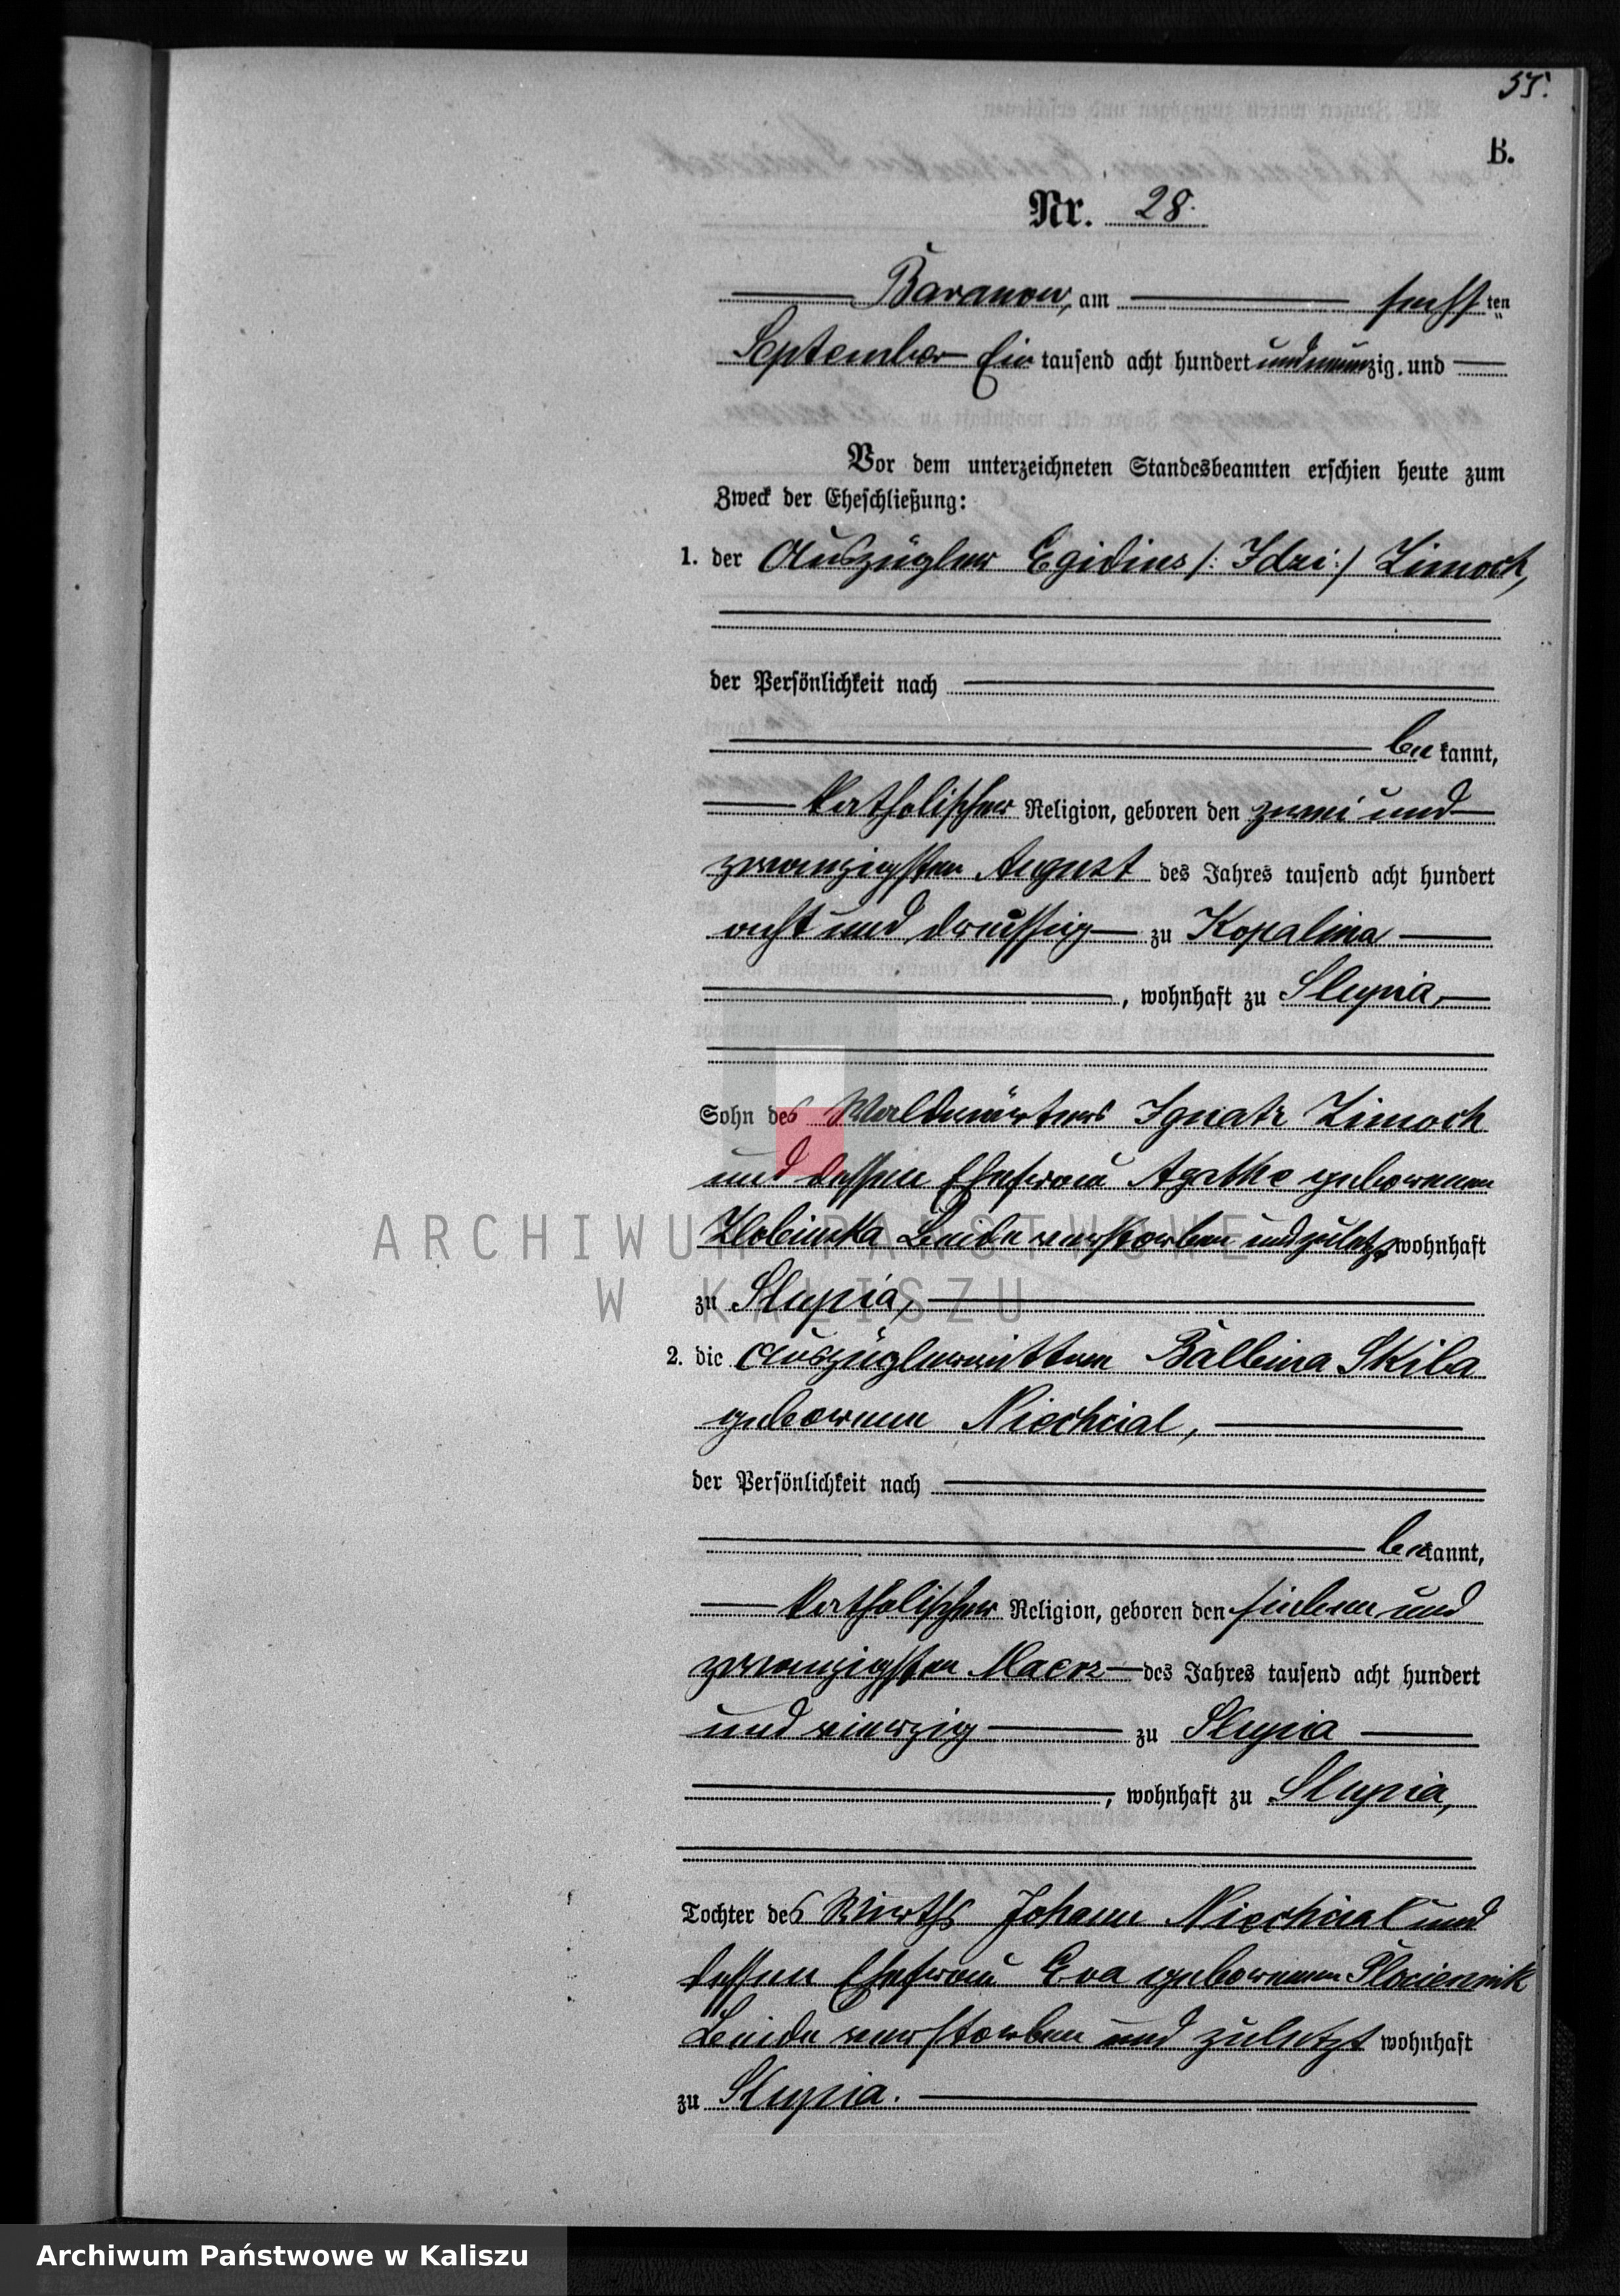 55.
B.
Nr. 28.
Baranow, am sechsten
September Ein tausend acht hundert und neunzig und
Vor dem unterzeichneten Standesbeamten erschien heute zum
Zweck der Eheschließung:
1. der Auszügler Egidius /: Idzi :/ Zimoch,
der Persönlichkeit nach
be kannt,
katholischer Religion, geboren den zwei und
zwanzigsten August des Jahres tausend acht hundert
acht und dreissig zu Kopalina
, wohnhaft zu Slupia,
Sohn des Waldwärters Ignatz Zimoch
und dessen Ehefrau Agathe geborenen
Zlobinska Beide verstorben und zuletzt wohnhaft
zu Slupia,
2. die Auszüglerwittwe Balbina Skiba
geborene Niechcial,
der Persönlichkeit nach
be kannt,
katholischer Religion, geboren den sieben und
zwanzigsten Maerz des Jahres tausend acht hundert
und vierzig zu Slupia
, wohnhaft zu Slupia,
Tochter des Wirths Johann Niechcial und
dessen Ehefrau Eva geborenen Plociennik
Beide verstorben und zuletzt wohnhaft
zu Slupia.
ARCHIWUM PAŃSTWOWE
W KALISZU
Archiwum Państwowe w Kaliszu